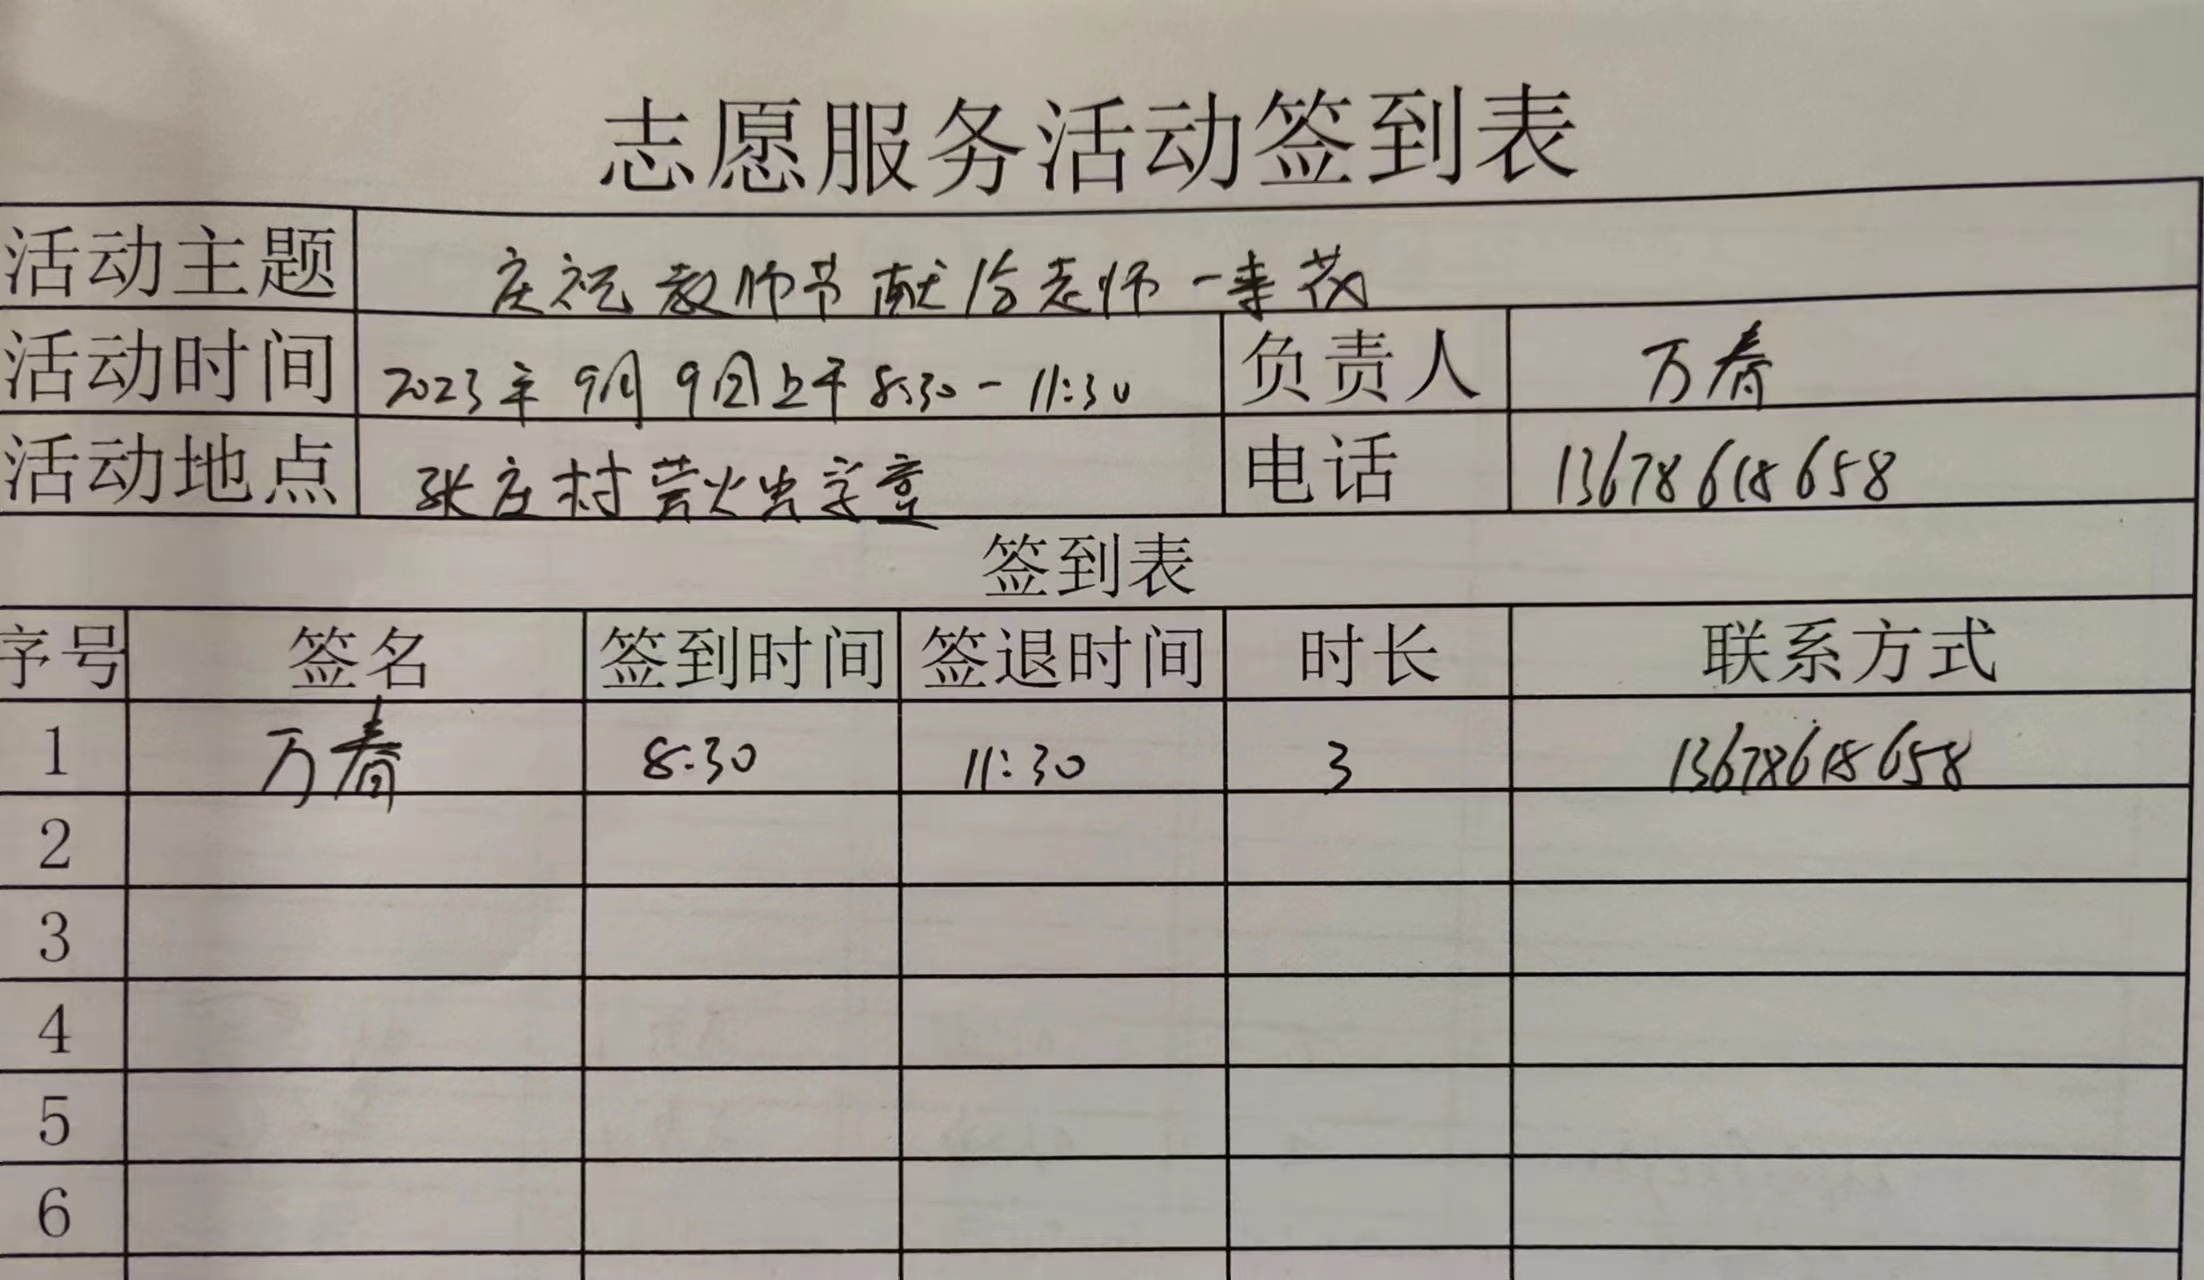 志愿服务活动签到表
活动主题 庆祝教师节献给老师一束花
活动时间 2023年9月9日上午8:30-11:30 负责人 万春
活动地点 张庄村萤火虫学堂 电话 13678618658
签到表
序号 签名 签到时间 签退时间 时长 联系方式
1 万春 8:30 11:30 3 13678618658
2
3
4
5
6